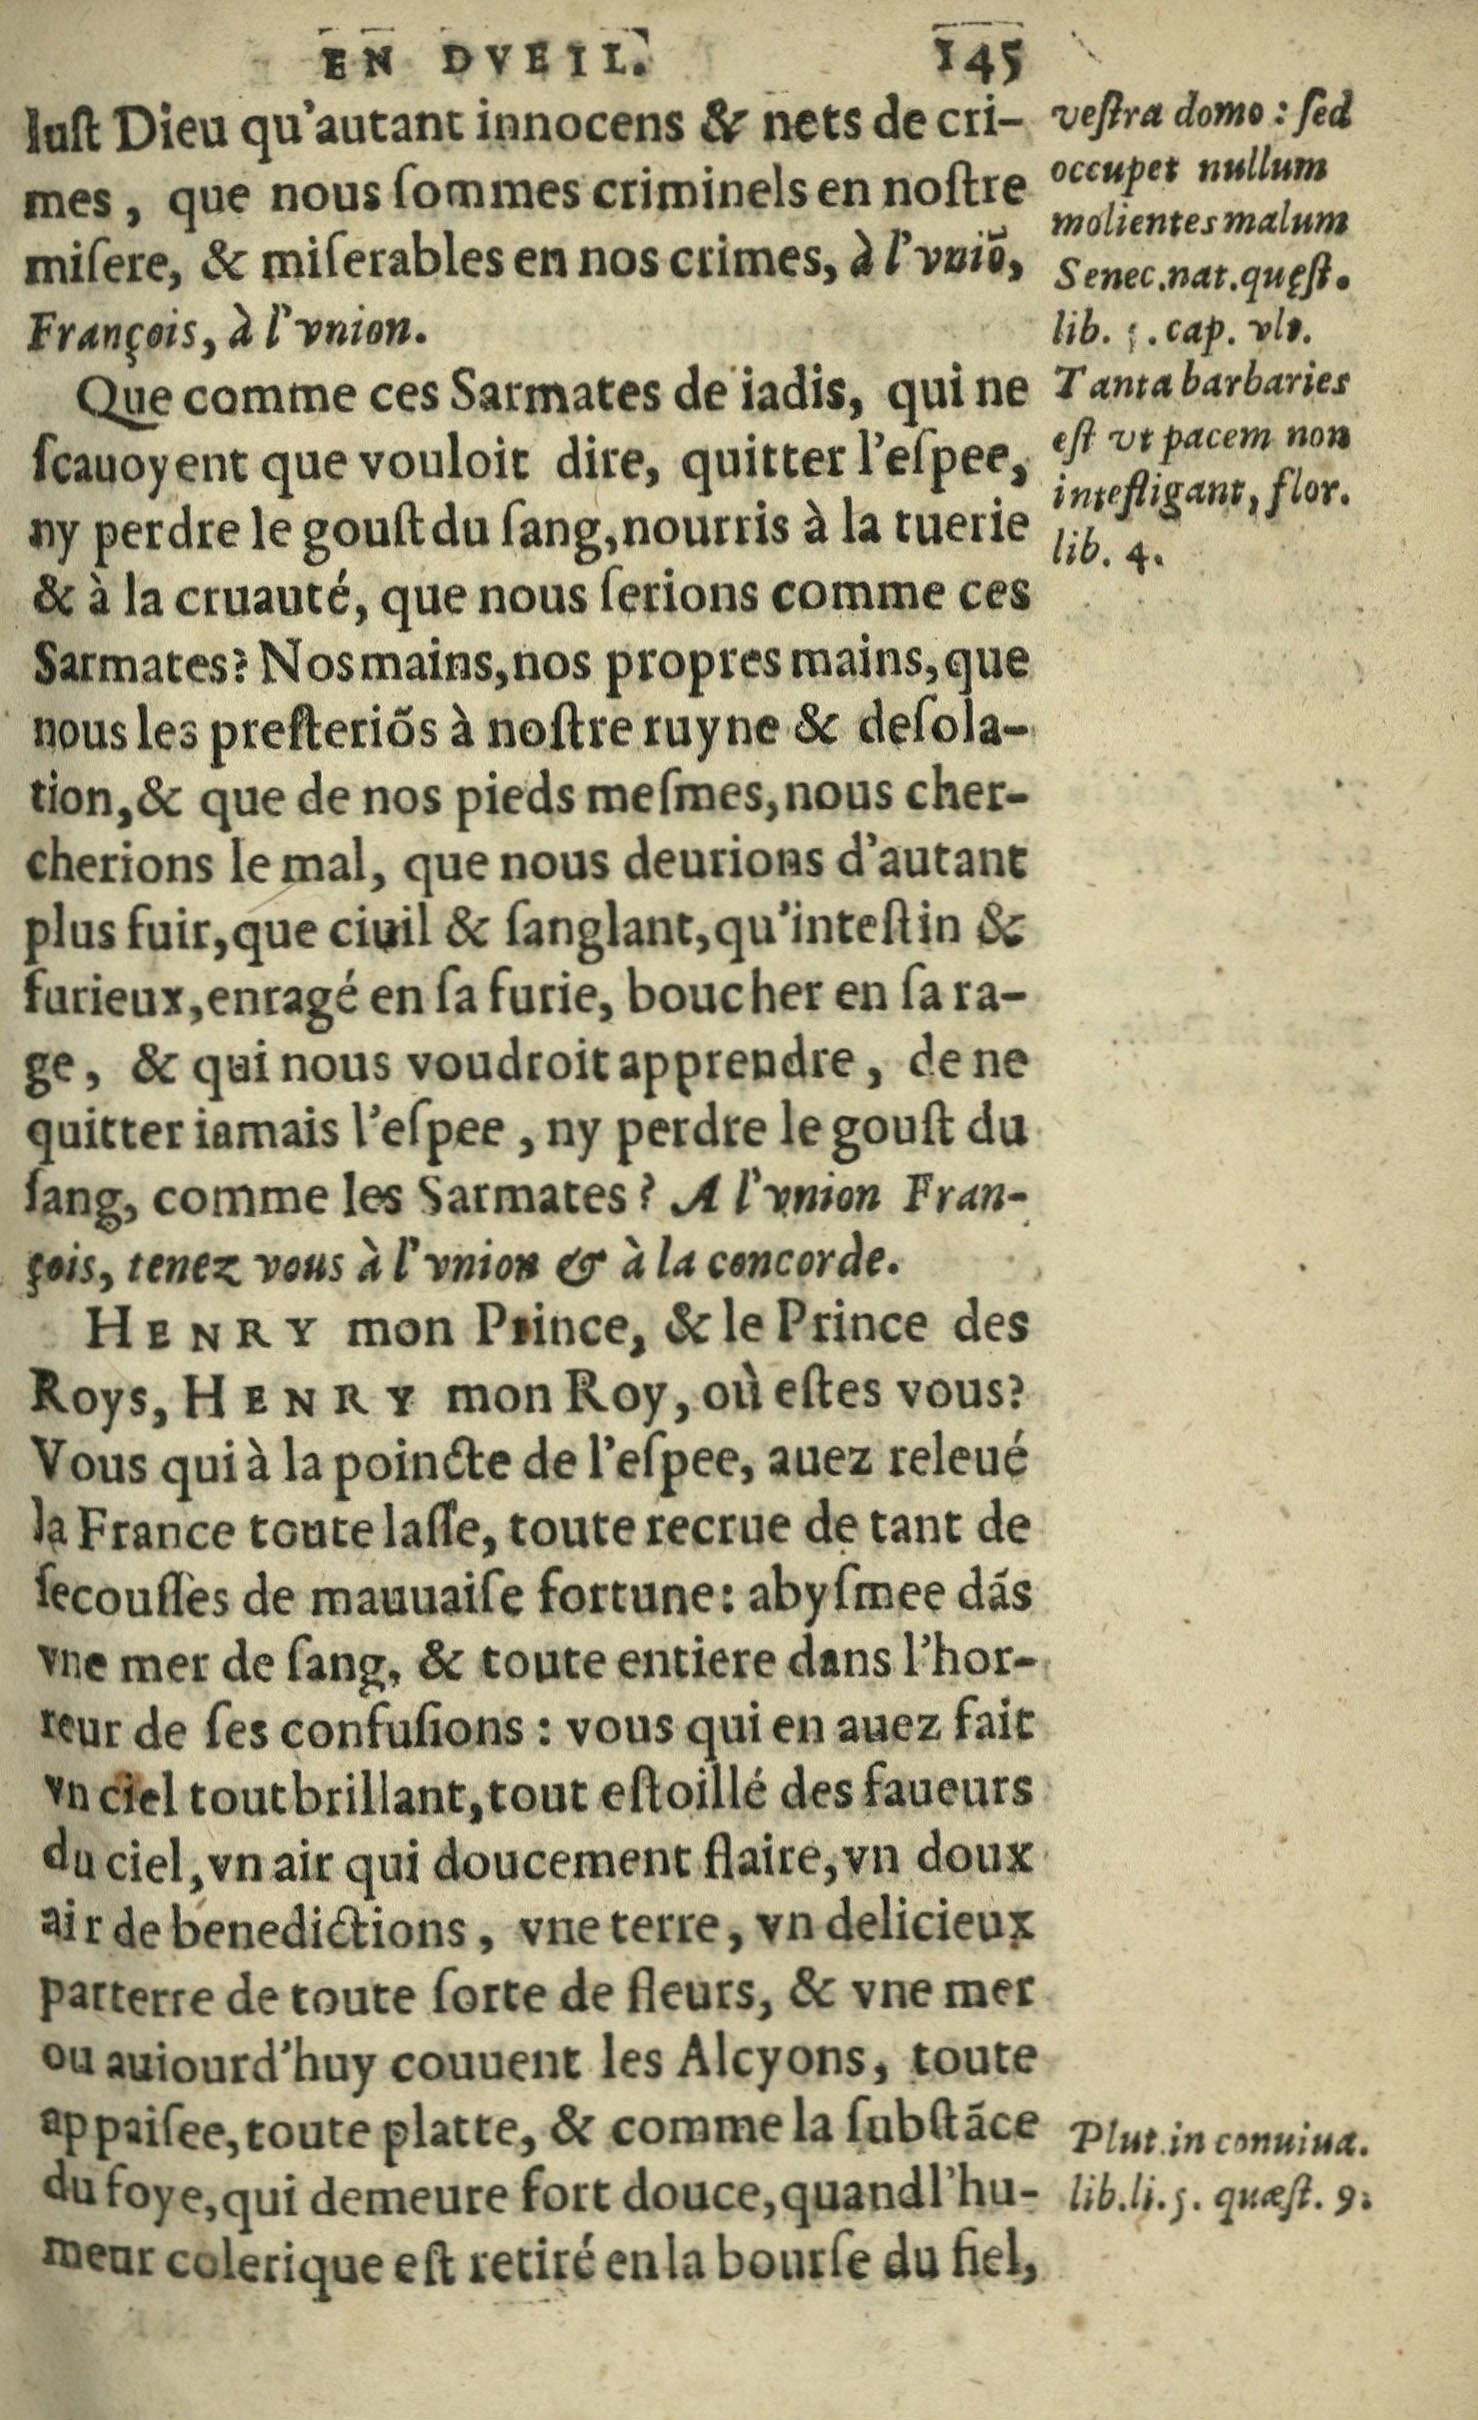 EN DVEIL. 145
luſt Dieu qu'autant innocens & nets de cri-
mes, que nous ſommes criminels en noſtre
miſere, & miſerables en nos crimes, à l'vniō,
François, à l'vnion.
Que comme ces Sarmates de iadis, qui ne
ſcauoyent que vouloit dire, quitter l'eſpee,
ny perdre le gouſt du ſang, nourris à la tuerie
& à la cruauté, que nous ſerions comme ces
Sarmates? Nos mains, nos propres mains, que
nous les preſteriõs à noſtre ruyne & deſola-
tion, & que de nos pieds meſmes, nous cher-
cherions le mal, que nous deurions d'autant
plus fuir, que ciuil & ſanglant, qu'inteſtin &
furieux, enragé en ſa furie, boucher en ſa ra-
ge, & qui nous voudroit apprendre, de ne
quitter iamais l'eſpee, ny perdre le gouſt du
ſang, comme les Sarmates? A l'vnion Fran-
çois, tenez vous à l'vnion & à la concorde.
HENRY mon Prince, & le Prince des
Roys, HENRY mon Roy, où eſtes vous?
Vous qui à la poincte de l'eſpee, auez releué
la France toute laſſe, toute recrue de tant de
ſecouſſes de mauuaiſe fortune: abyſmee dãs
vne mer de ſang, & toute entiere dans l'hor-
reur de ſes confuſions: vous qui en auez fait
vn ciel tout brillant, tout eſtoillé des faueurs
du ciel, vn air qui doucement flaire, vn doux
air de benedictions, vne terre, vn delicieux
parterre de toute ſorte de fleurs, & vne mer
ou auiourd'huy couuent les Alcyons, toute
appaiſee, toute platte, & comme la ſubſtãce
du foye, qui demeure fort douce, quand l'hu-
meur colerique eſt retiré en la bourſe du fiel,
veſtra domo: ſed
occupet nullum
molientes malum
Senec. nat. quęſt.
lib. . cap. vlt.
Tanta barbaries
eſt vt pacem non
intelligant, flor.
lib. 4.
Plut. in conuiua.
lib. li. 5. quæſt. 9.